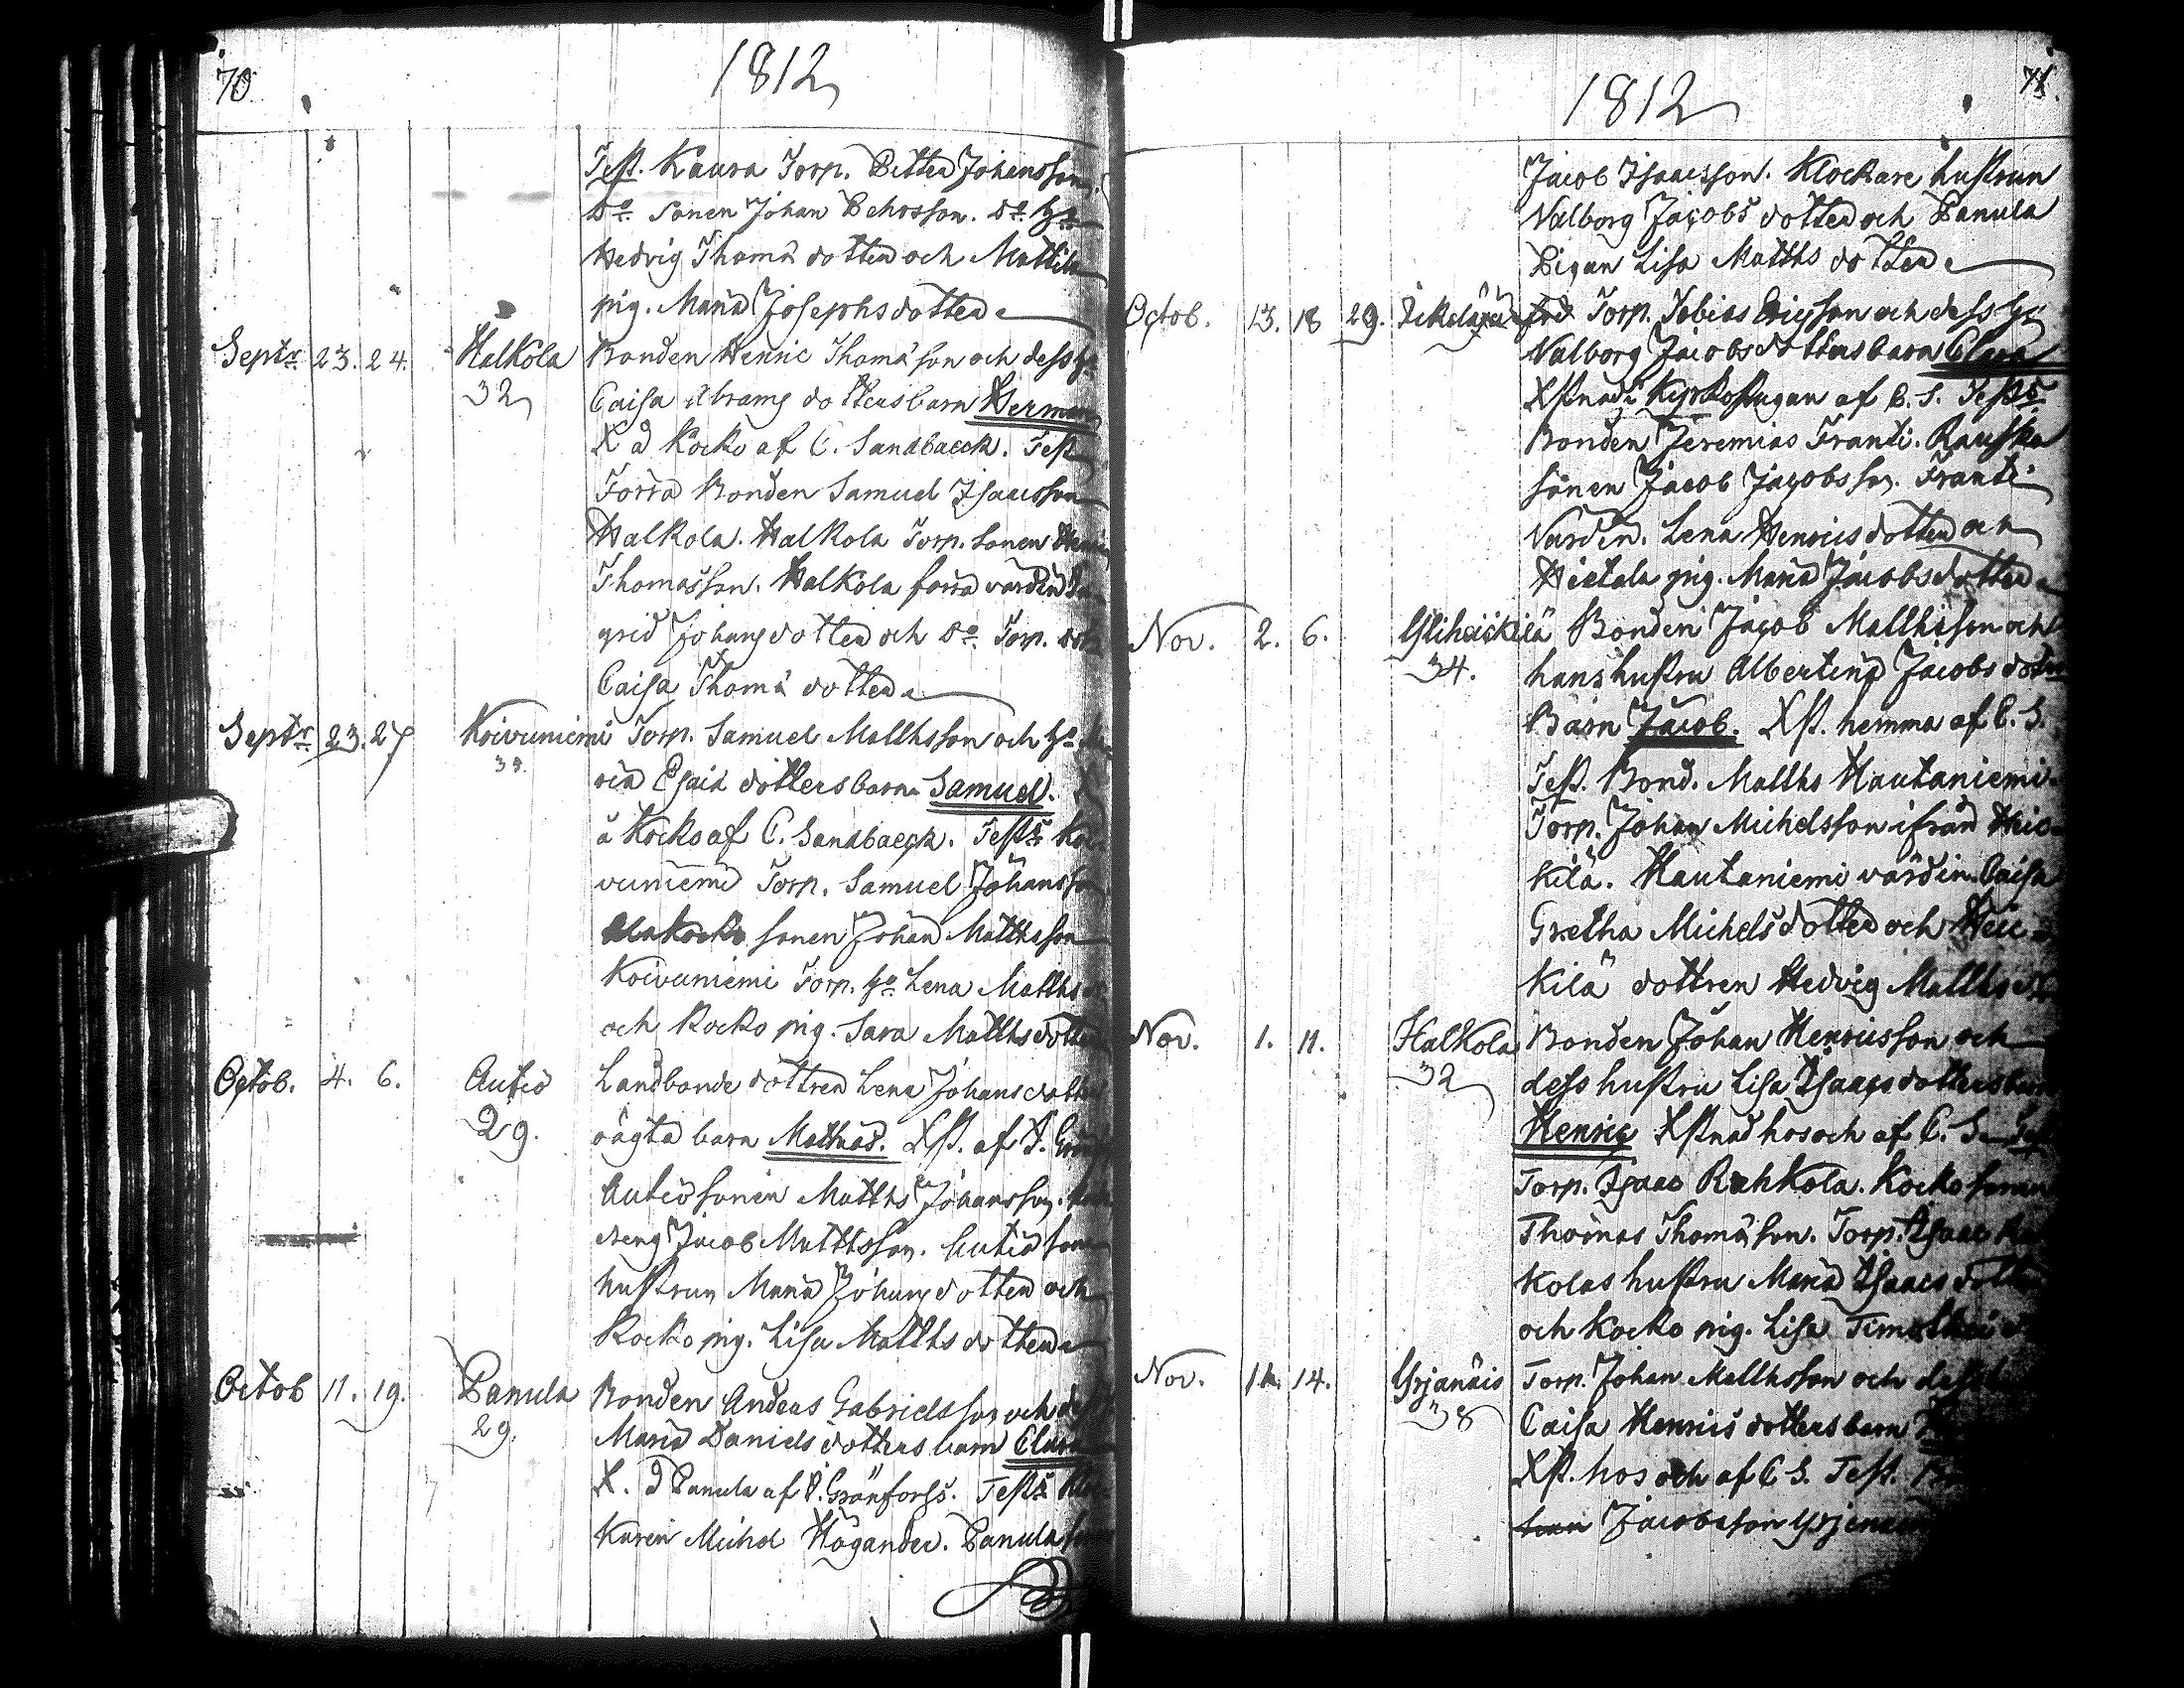 70
1812
Test. Kaura Torp. Petter Johansson
Do. Sonen Johan Pehrsson. Do. ho
Hedvig Thomæ dotter och Mattila
pig. Maria Josephsdotter
Septr. 23. 24. Halkola Bonden Henric Thomæson och dess ho
32 Caisa Abrams dotters barn Herman
X å Kocko af C. Sandbaeck. Test
Förra Bonden Samuel Isaacsson
Halkola. Halkola Torp. sonen Henric
Thomasson. Halkola förra värdin In-
grid Johansdotter och Do. Torp.
Caisa Thomæ dotter
Septr. 23. 27 Koivuniemi Torp. Samuel Matthsson och ho
ria Esaiæ dotters barn Samuel.
å Kocko af C. Sandbaeck. Test: Koi-
vuniemi Torp. Samuel Johansson
Alakocko sonen Johan Matthsson
Koivuniemi Torp. ho Lena Matths
och Kocko pig. Sara Matthsdotter
Octob. 4. 6. Autio Landbonde dottren Lena Johansdotter
29. oägta barn Mathias. Xst. af P.
Autio sonen Matths Johansson.
dreng Jacob Matthsson. Autio sone
hustrun Maria Johansdotter och
Kocko pig. Lisa Matths dotter
Octob 11. 19. Panula Bonden Anders Gabrielsson och
29. Maria Daniels dotters barn Clara
X. å Panula af P. Grönforss. Test: Kloc-
karen Michel Högander. Panula
71.
1812
Jacob Isaacsson. Klockare hustrun
Valborg Jacobs dotter och Panula
Pigan Lisa Matths dotter
Octob. 13. 18 29. Torp. Tobias Ericsson och dess ho
Valborg Jacobsdotters barn Clara
Xstnad i Kyrkostugan af C. S. Test:
Bonden Jeremias Franti. Rauska
sonen Jacob Jacobsson. Franti
Värdin. Lena Henricsdotter och
Hietala pig. Maria Jacobsdotter
Nov. 2. 6. Yliheickilä Bonden Jacob Matthsson och
34. hans hustru Albertina Jacobs dotters
Barn Jacob. Xst. hemma af C. S.
Test. Bond. Matths Hautaniemi
Torp. Johan Michelsson ifrån Heic-
kilä. Hautaniemi värdin. Caisa
Gretha Michelsdotter och Heic-
kilä dottren Hedvig Matths
Nov. 1. 11. Halkola Bonden Johan Henricsson och
32 dess hustru Lisa Isaacsdotters barn
Henric Xstnad hos och af C. S. Test
Torp. Isaac Rahkola. Kocko sonen
Thomas Thomæson. Torp. Isaac Rah-
kolas hustru Maria Isaacs dotter
och Kocko pig. Lisa Timothei
Nov. 14. Yrjänäis Torp. Johan Matthsson och dess
38 Caisa Henrics dotters barn
Xst. hos och af C S. Test.
Jacobsson Yrjänäis